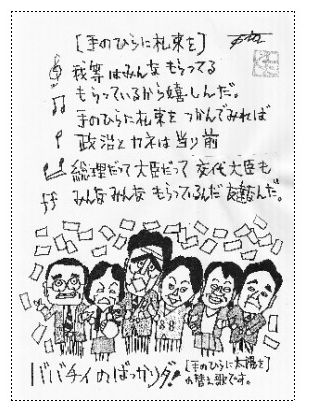 [手のひらに札束を]
我等はみんなもらってる
もらっているから嬉しんだ。
手のひらに札束をつかんでみれば
政治とカネは当り前
総理だって大臣だって 交代大臣も
みんなみんな もらっているんだ 友達んだ。
ババチイのばっかりダ!
[手のひらに太陽を]
の替え歌です。